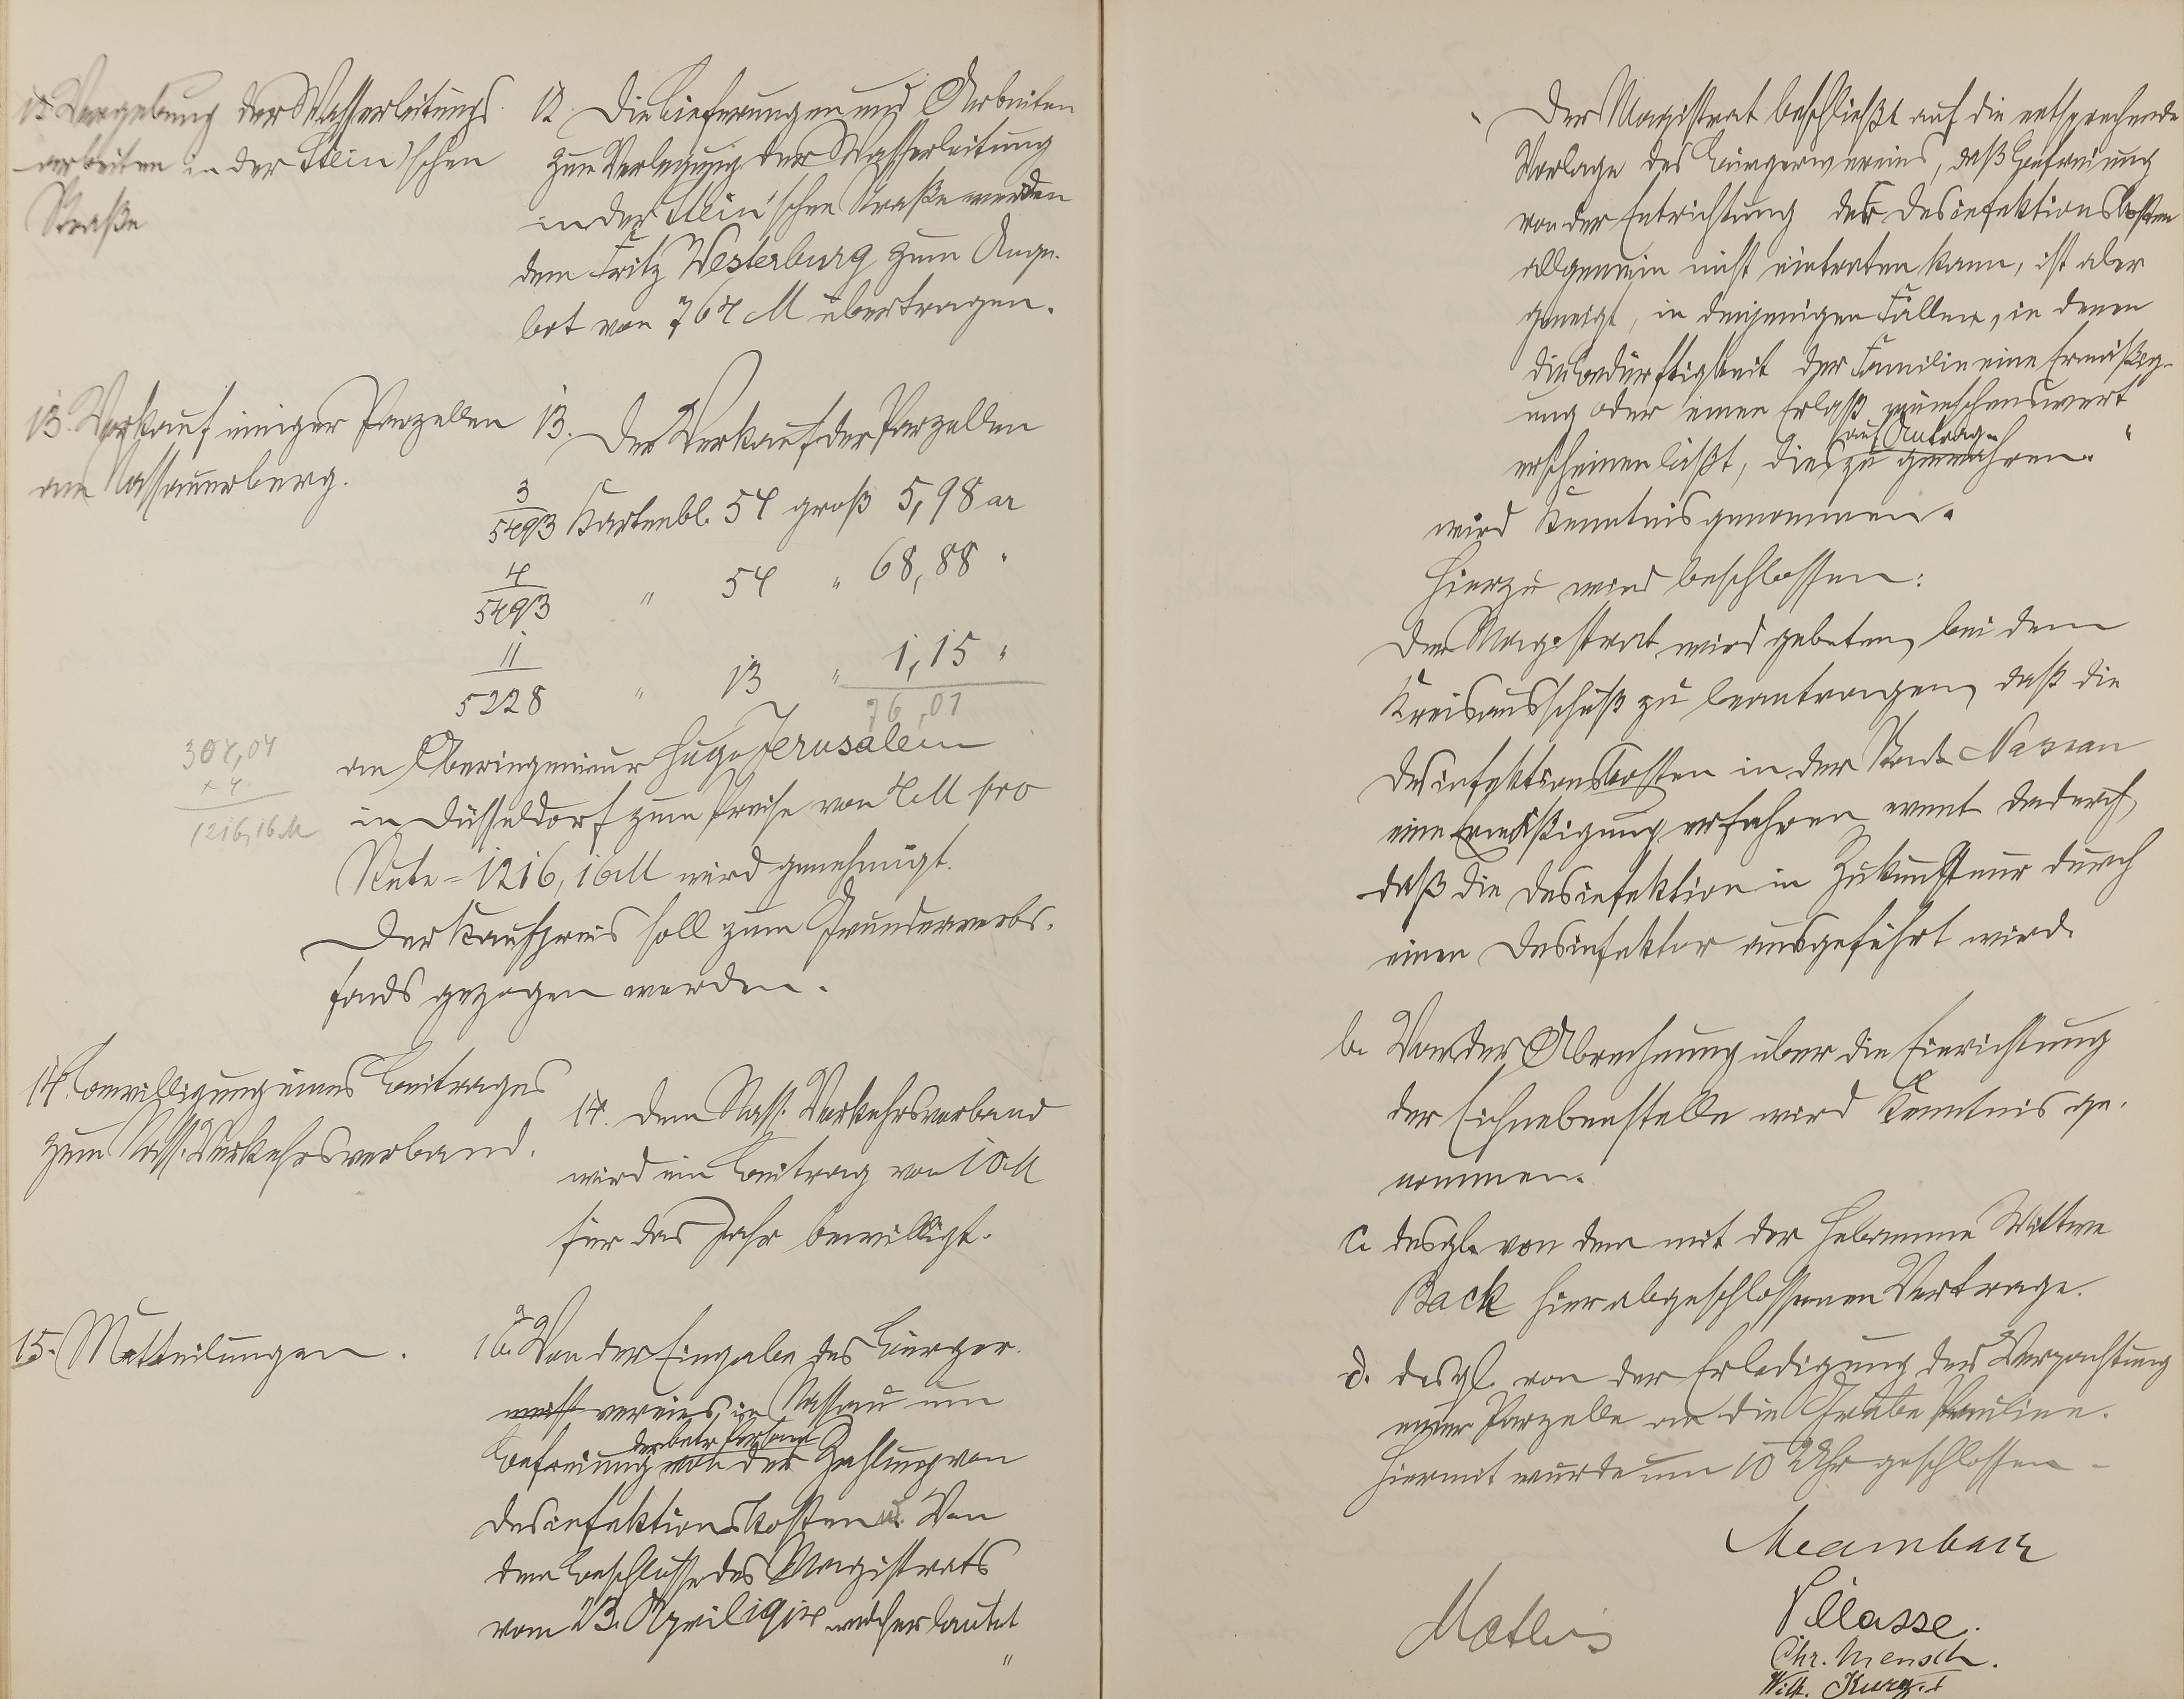 12. Vergebung der Wasserleitungs-
arbeiten in der Stein'schen
Straße
12. Die Lieferungen und Arbeiten
zur Verlegung der Wasserleitung
in der Stein'schen Straße werden
dem Fritz Westerburg zum Ange-
bot von 764 M übertragen.
13. Verkauf einiger Parzellen
am Nassauerberg.
13. Der Verkauf der Parzellen
3
5493 Kartenbl. 54 groß 5,98 ar
4
5493 " 54 " 68,88 "
11
5228 " 13 " 1,15 "
76,01
304,04
x 4
1216,16 M
an Oberingenieur Hugo Jerusalem
in Düsseldorf zum Preise von 4 M pro
Rute = 1216,16 M wird genehmigt.
Der Kaufpreis soll zum Grunderwerbs-
fonds gezogen werden.
14. Bewilligung eines Beitrages
zum Nass. Verkehrsverband.
14. Dem Nass. Verkehrsverband
wird ein Beitrag von 10 M
für das Jahr bewilligt.
15. Mitteilungen.
a. Von der Eingabe des Bürger-
vereins in Nassau um
der betr. Personen
Befreiung von der Zahlung von
Desinfektionskosten u. von
dem Beschlusse des Magistrats
vom 23. April 1914 welcher lautet
"
" Der Magistrat beschließt auf die entsprechende
Vorlage des Bürgervereins, daß Befreiung
von der Entrichtung der Desinfektionskosten
allgemein nicht eintreten kann, ist aber
geneigt, in denjenigen Fällen, in denen
die Bedürftigkeit der Familie eine Ermäßig-
ung oder einen Erlaß wünschenswert
auf Antrag
erscheinen läßt, dies zu gewähren. "
wird Kenntnis genommen.
Hierzu wird beschlossen:
Der Magistrat wird gebeten, bei dem
Kreisausschuß zu beantragen, daß die
Desinfektionskosten in der Stadt Nassau
eine Ermäßigung erfahren event. dadurch,
daß die Desinfektion in Zukunft nur durch
einen Desinfektor ausgeführt wird.
b. Von der Abrechnung über die Einrichtung
der Eichnebenstelle wird Kenntnis ge-
nommen.
c. desgl. von dem mit der Hebamme Wittwe
Back hier abgeschlossenen Vertrage.
d. desgl. von der Erledigung der Verpachtung
einer Parzelle an die Grube Pauline.
Hiermit wurde um 10 Uhr geschlossen.
Chr. Mensch.
Wilh. Kurz. I